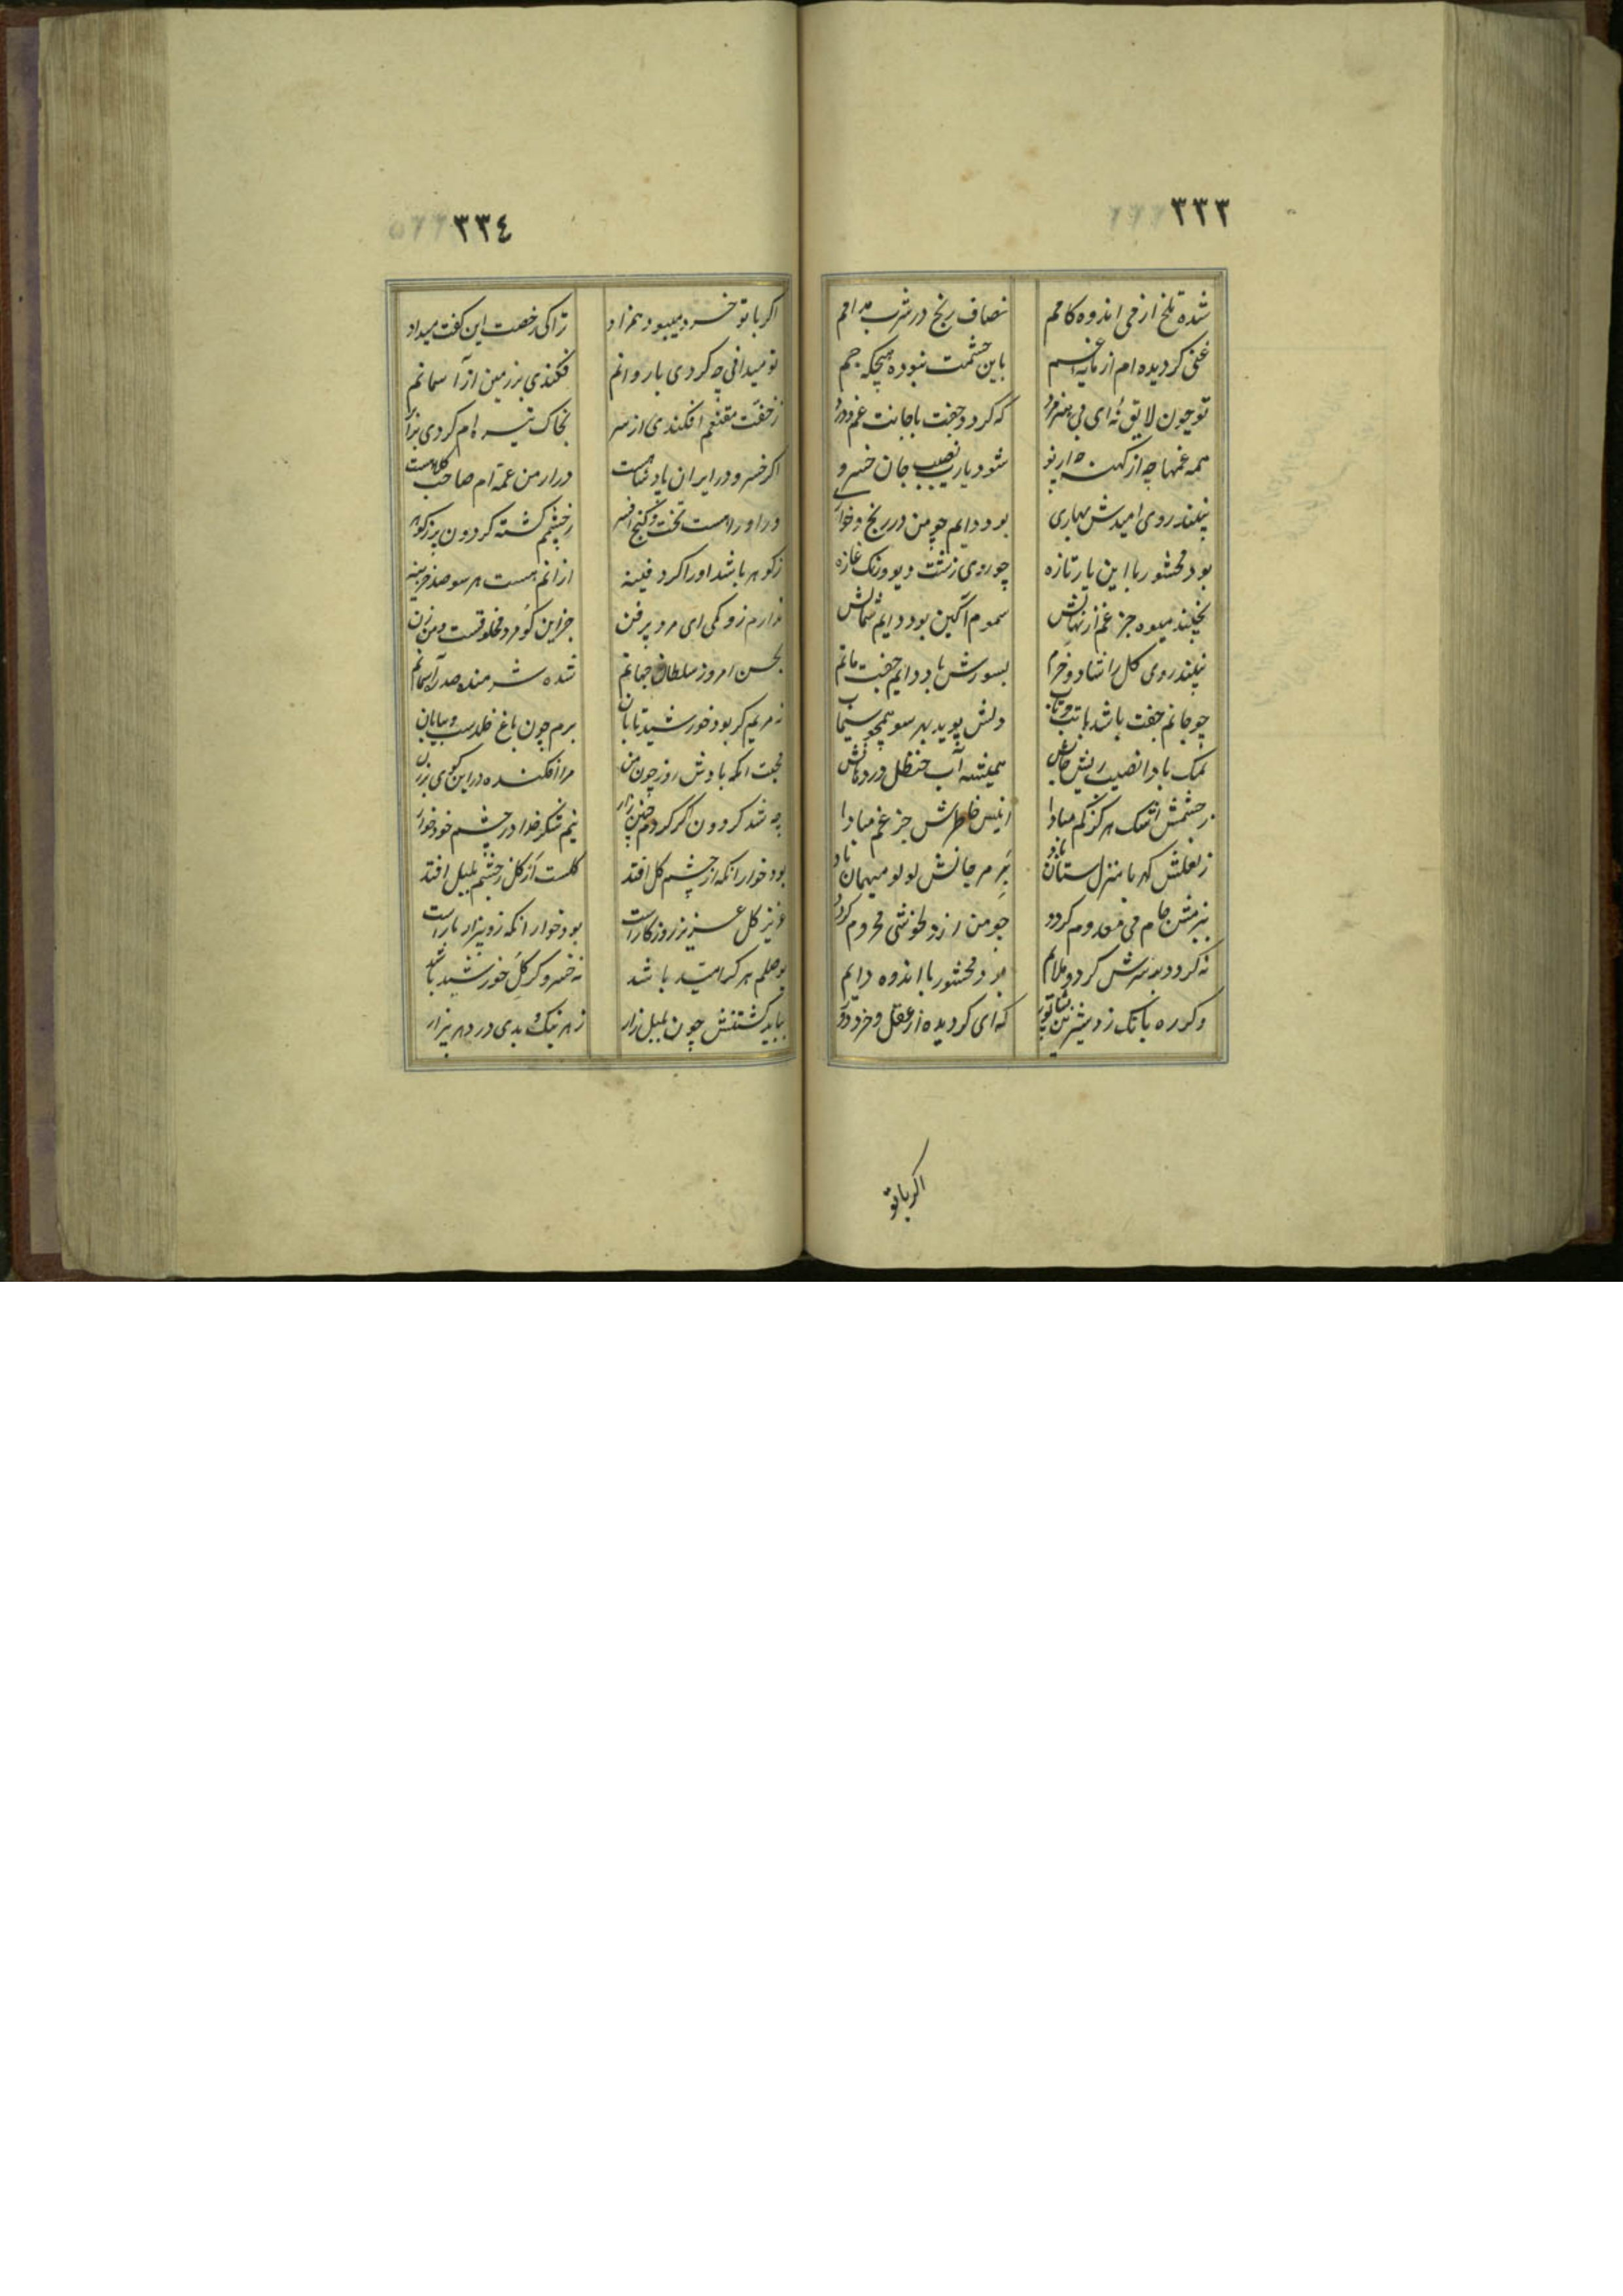 ٣٣٣
شده تلخ از می اندوه کامم ز صاف رنج در شرب مدامم
غنی کردیده ام از مایه غم باین حشمت نبوده هیچکه جم
تو چون لایق نه ای بی هنر مرد که کردد جفت با جانت غم و درد
همه غمها چه از کهنه چه از نو شود یارب نصیب جان خسرو
نبیند روی امیدش بهاری بود دایم چو من در رنج و خواری
بود محشور با این یار تازه چو روی زشت دیو و رنک غازه
نچیند میوه جز غم از نهالش سموم آکین بود دایم شمالش
نبیند روی کل را شاد و خرم بسورش باد دایم جفت ماتم
چو جانم جفت باشد با تب و تاب دلش پوید بهر سو همچو سیماب
نمک بادا نصیب ریش جانش همیشه آب حنظل در دهانش
ز چشمش اشک هرکز کم مبادا انیس خاطرش جز غم مبادا
ز لعلش کهربا منزل ستان باد بر مرجانش لولو میهمان باد
ببزمش جام می معدوم کردد چو من از دلخوشی محروم کردد
نه کردد بد سرش کردد ملایم بود محشور با اندوه دایم
دکر ره بانک زد شیرین بشاپور که ای کردیده از عقل و خرد دور
اکر با تو
٣٣٤
اکر با تو خرد میبود همزاد ترا کی رخصت این کفت میداد
تو میدانی چه کردی با روانم فکندی بر زمین از آسمانم
ز خفت مقنعم افکندی از سر بخاک تیره ام کردی برابر
اکر خسرو در ایران پادشاهست در ارمن عمه ام صاحب کلاهست
ور او را هست تخت و کنج و افسر ز چشمم کشته کردون پر ز کوهر
ز کوهر باشد او را کر دفینه از آنم هست هر سو صد خزینه
ندارم زو کمی ای مرد پر فن جز این کو مرد مخلوقست و من زن
بحسن امروز سلطان جهانم شده شرمنده صدر آسمانم
نه مریم کر بود خورشید تابان برم چون باغ خلدست و بیابان
محبت انکه بادش روز چون من مرا افکنده در این کوی برزن
چه شد کردون اکر کردم چنین زار نیم شکر خدا در چشم خود خوار
بود خوار انکه از چشم کل افتد کلست آن کل ز چشم بلبل افتد
عزیز کل عزیز روزکار است بود خوار انکه زو بیزار یار است
بوصلم هر کرا امید باشد نه خسرو کر کل خورشید باشد
بباید کشتنش چون بلبل زار ز هر نیک و بدی در دهر بیزار